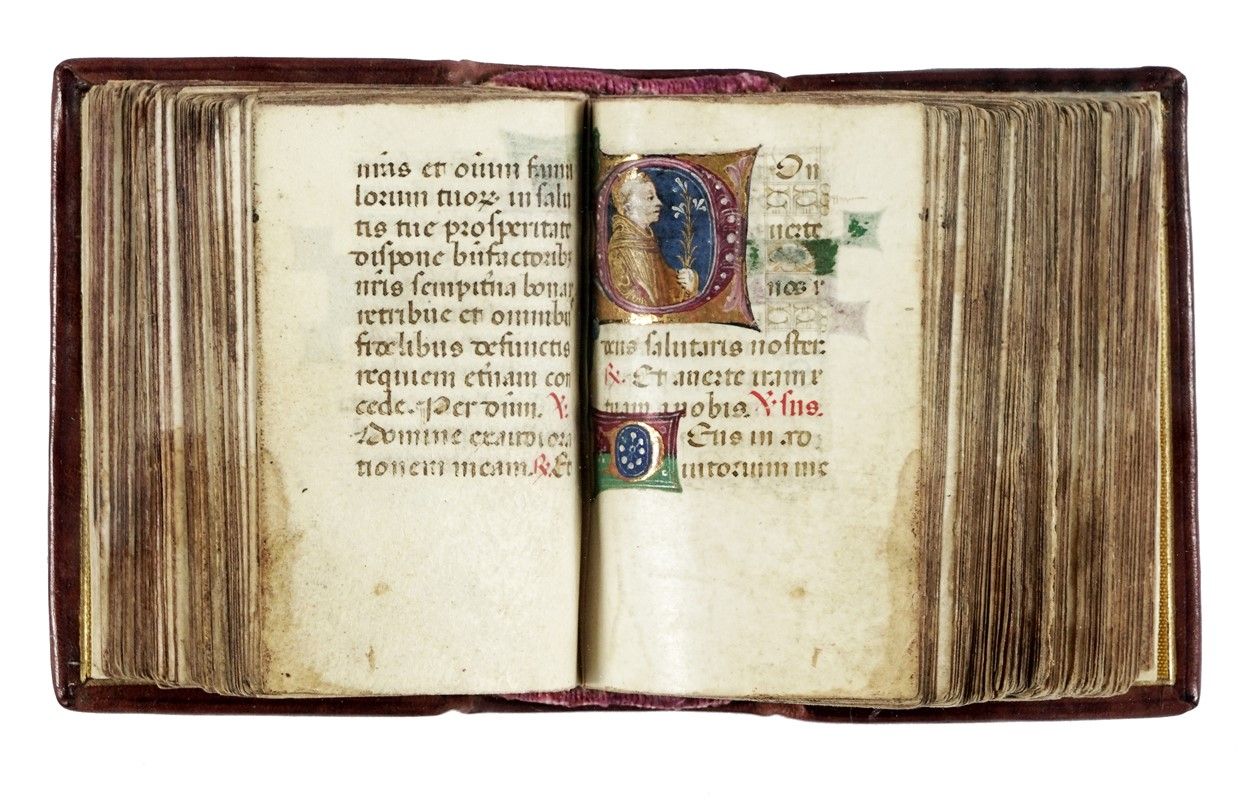 nr̄as et oīum famu
lorum tuoꝝ in salu
tis tue prosperitate
dispone bn̄factoribꝫ
nr̄is sempit̄na bona
retribue et omnibus
fidelibus defunctis
requiem et̄nam con
cede. Per dn̄m. ℣.
Domine exaudi ora
tionem meam. ℟. Et
On
uerte
nos
deus salutaris noster.
℟. Et auerte iram
tuam a nobis. ℣sus.
Deus in ad
iutorium me